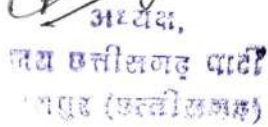 अध्यक्ष,
छत्तीसगढ़ पार्टी
(छत्तीसगढ़)